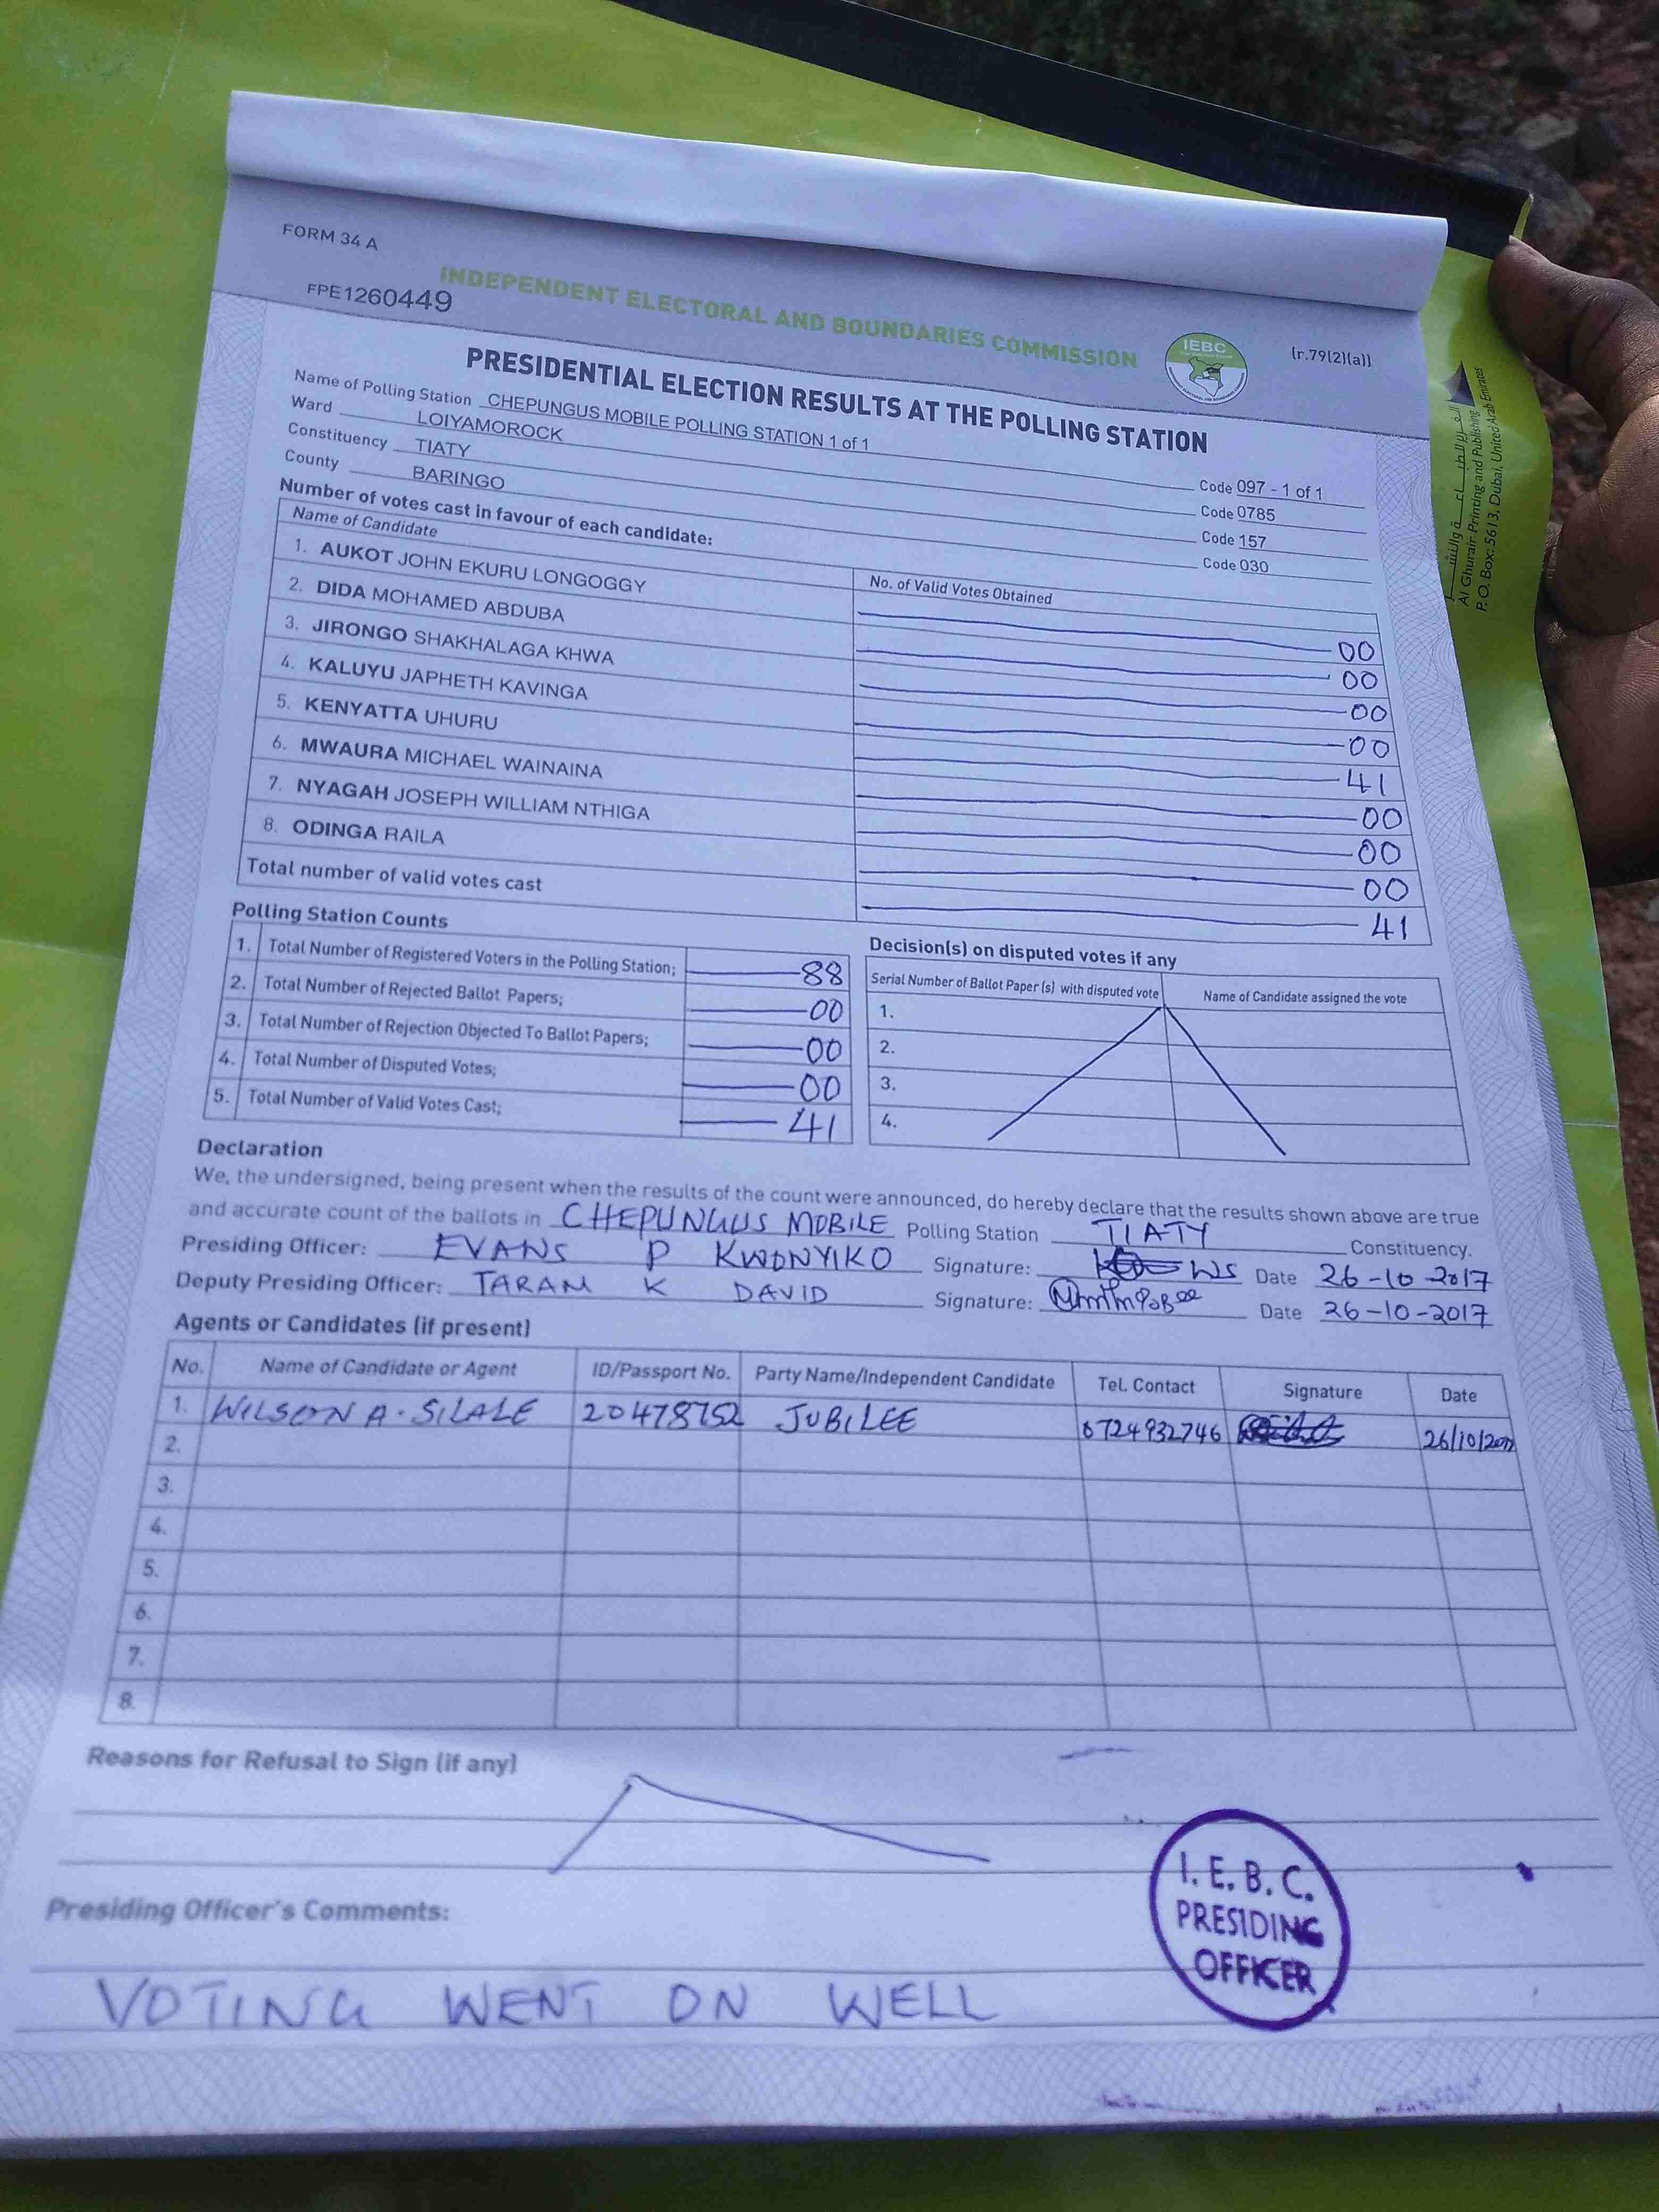 FORM 34 A
INDEPENDENT ELECTORAL AND BOUNDARIES COMMISSION
FPE1260449
IEBC
(r.79(2)(a))
PRESIDENTIAL ELECTION RESULTS AT THE POLLING STATION
Name of Polling Station CHEPUNGUS MOBILE POLLING STATION 1 of 1 Code 097 - 1 of 1
Ward LOIYAMOROCK Code 0785
Constituency TIATY Code 157
County BARINGO Code 030
Number of votes cast in favour of each candidate:
Name of Candidate No. of Valid Votes Obtained
1. AUKOT JOHN EKURU LONGOGGY 00
2. DIDA MOHAMED ABDUBA 00
3. JIRONGO SHAKHALAGA KHWA 00
4. KALUYU JAPHETH KAVINGA 00
5. KENYATTA UHURU 41
6. MWAURA MICHAEL WAINAINA 00
7. NYAGAH JOSEPH WILLIAM NTHIGA 00
8. ODINGA RAILA 00
Total number of valid votes cast 41
Polling Station Counts
1. Total Number of Registered Voters in the Polling Station; 88
2. Total Number of Rejected Ballot Papers; 00
3. Total Number of Rejection Objected To Ballot Papers; 00
4. Total Number of Disputed Votes; 00
5. Total Number of Valid Votes Cast; 41
Decision(s) on disputed votes if any
Serial Number of Ballot Paper (s) with disputed vote Name of Candidate assigned the vote
1.
2.
3.
4.
Declaration
We, the undersigned, being present when the results of the count were announced, do hereby declare that the results shown above are true
and accurate count of the ballots in CHEPUNGUS MOBILE Polling Station TIATY Constituency.
Presiding Officer: EVANS P KWONYIKO Signature: Date 26-10-2017
Deputy Presiding Officer: TARAM K DAVID Signature: Date 26-10-2017
Agents or Candidates (if present)
No. Name of Candidate or Agent ID/Passport No. Party Name/Independent Candidate Tel. Contact Signature Date
1. WILSON A. SILALE 20478752 JUBILEE 0724932746 26/10/2017
2.
3.
4.
5.
6.
7.
8.
Reasons for Refusal to Sign (if any)
Presiding Officer's Comments:
VOTING WENT ON WELL
I. E. B. C.
PRESIDING
OFFICER
Al Ghurair Printing and Publishing
P. O. Box: 5613, Dubai, United Arab Emirates